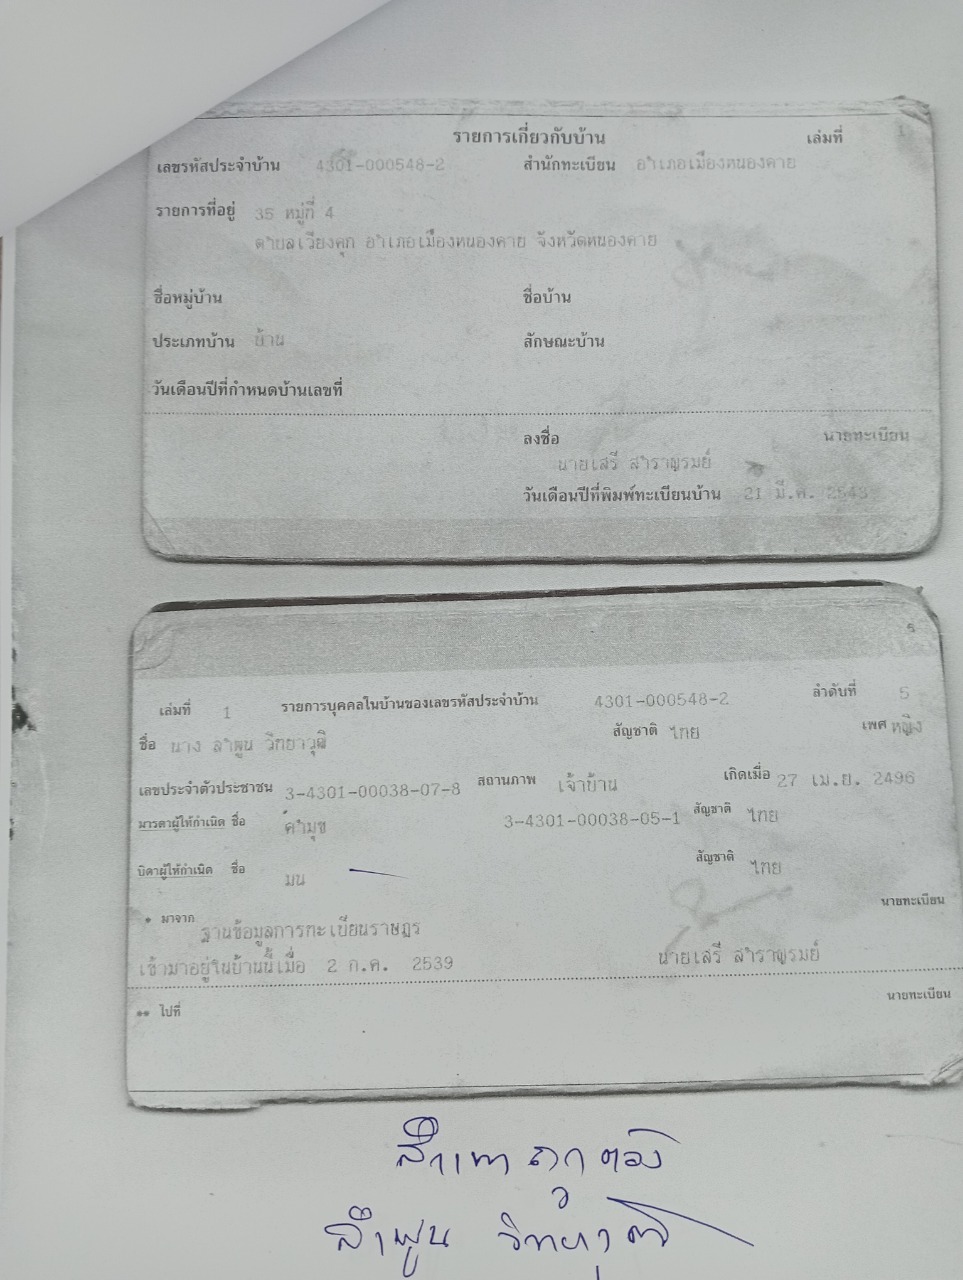 รายการเกี่ยวกับบ้าน เล่มที่ 1
เลขรหัสประจำบ้าน 4301-000548-2 สำนักทะเบียน อำเภอเมืองหนองคาย
รายการที่อยู่ 35 หมู่ที่ 4
ตำบลเวียงคุก อำเภอเมืองหนองคาย จังหวัดหนองคาย
ชื่อหมู่บ้าน ชื่อบ้าน
ประเภทบ้าน บ้าน ลักษณะบ้าน
วันเดือนปีที่กำหนดบ้านเลขที่
ลงชื่อ นายทะเบียน
นายเสรี สำราญรมย์
วันเดือนปีที่พิมพ์ทะเบียนบ้าน 21 มี.ค. 2543
5
เล่มที่ 1 รายการบุคคลในบ้านของเลขรหัสประจำบ้าน 4301-000548-2 ลำดับที่ 5
ชื่อ นาง ลำพูน วิทยาวุฒิ สัญชาติ ไทย เพศ หญิง
เลขประจำตัวประชาชน 3-4301-00038-07-8 สถานภาพ เจ้าบ้าน เกิดเมื่อ 27 เม.ย. 2496
มารดาผู้ให้กำเนิด ชื่อ คำมุข 3-4301-00038-05-1 สัญชาติ ไทย
บิดาผู้ให้กำเนิด ชื่อ มน สัญชาติ ไทย
* มาจาก ฐานข้อมูลการทะเบียนราษฎร นายทะเบียน
เข้ามาอยู่ในบ้านนี้เมื่อ 2 ก.ค. 2539 นายเสรี สำราญรมย์
** ไปที่ นายทะเบียน
สำเนาถูกต้อง
ลำพูน วิทยาวุฒิ